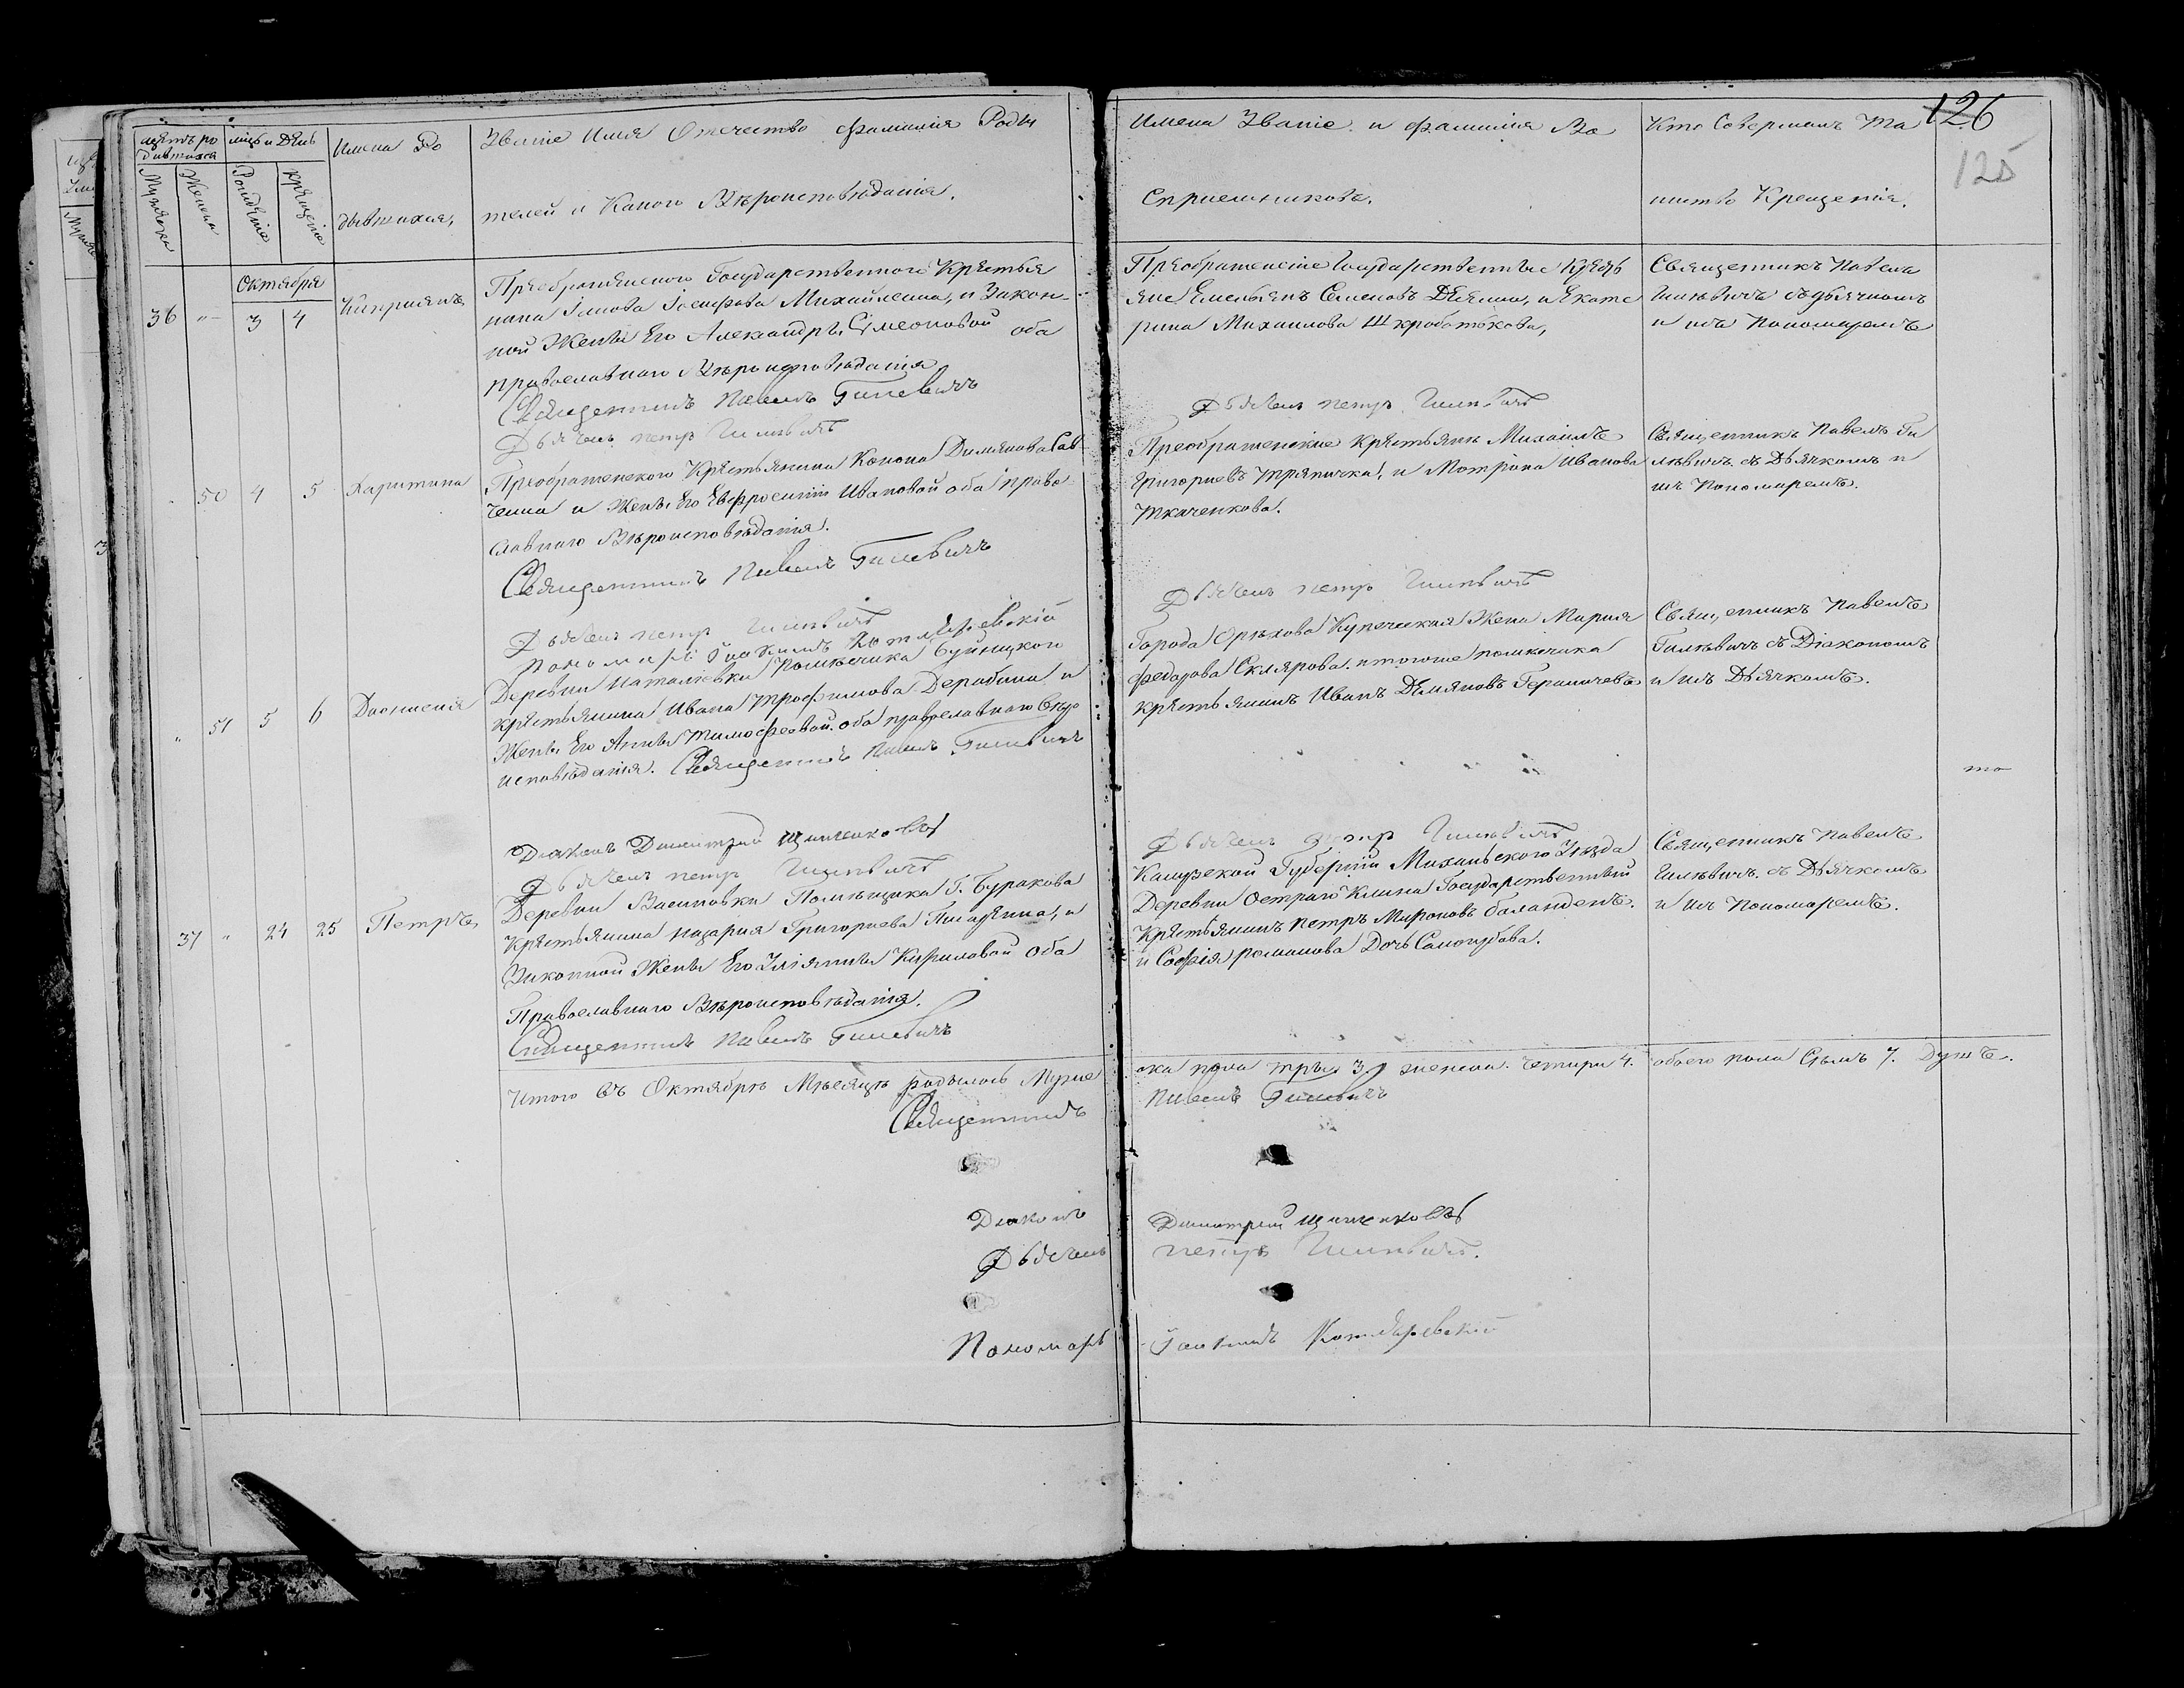 126
125
щетъ ро
дившихся
мцъ и день
Имена Ро
Званіе Имя Отечество фамилія Роди
Мужеска
Женска
Рожденіе
крещеніе
дившихся,
телей и Какого Вѣроисповѣданія.
Имена Званіе и фамилія Во
Кто Совершалъ Та
спріемниковъ.
инство Крещенія.
Октября
36 " 3 4 Кипріянъ
Преображенского Государственного Крестья
нина Іосифова Михайленка, и Закон-
ной Жены Его Александры Симеоновой оба
православнаго Вѣроисповѣданія
Священникъ Павелъ Гилевичъ
Дьячекъ петръ Гилевичъ
Преображенскіе Государственные Кресть
яне Емельянъ Семеновъ и Екате
рина Михаилова Шкроботкова,
Дьячекъ петръ Гилевичъ
Священникъ Павелъ
Гилѣвичъ съ дьячкомъ
и Пономаремъ
" 50 4 5 Харитина
Преображенского Крестьянина Конона Димянова Сав
ченка и Жены Его Евфросиніи Ивановой оба право
славнаго Вѣроисповѣданія.
Священникъ Павелъ Гилевичъ
Дьячекъ петръ Гилевичъ
пономарь Іоакимъ Котляревскій
Преображенскіе крестьяне Михаилъ
Григориевъ тряпичка, и Мотрона Иванова
ткаченкова.
Дьячекъ петръ Гилевичъ
Священникъ Павелъ Ги
лѣвичъ съ Дьячкомъ и
Пономаремъ.
" 51 5 6 Діонисія
Деревни Наталіевки помѣщика Буйницкого
крестьянина Ивана трофимова Дерабина и
Жены Его Анны тимофеевой оба православнаго Веро
исповѣданія. Священникъ Павелъ Гилевичъ
Діаконъ Димитрій
Дьячекъ петръ Гилевичъ
Города Орѣхова Купеческая Жена Марія
федорова Склярова и помѣщика
крестьянинъ Иванъ Демяновъ
Дьячекъ петръ Гилевичъ
Священникъ Павелъ
Гилѣвичъ съ Діакономъ
и Дьячкомъ.
то
37 " 24 25 Петръ,
Деревни Васиновки Помѣщика Г. Буракова
Крестьянина назария Григориева и
Законной Жены Его Уліянны Кириловой оба
Православнаго Вѣроисповѣданія.
Священникъ Павелъ Гилевичъ
Калужской Губерніи Уѣзда
Деревни Острого Клина Государственный
Крестьянинъ петръ Мироновъ
и Софія романова Дочь
Священникъ Павелъ
Гилѣвичъ съ Дьячкомъ
и Пономаремъ.
Итого въ Октябрѣ Мѣсяцѣ родилось Муже
ска пола три 3, женска четыри 4. обоего пола Семь 7. Душъ.
Священникъ Павелъ Гилевичъ
Діаконъ Димитрій
Дьячекъ петръ Гилевичъ.
Пономарь Іоакимъ Котляревскій